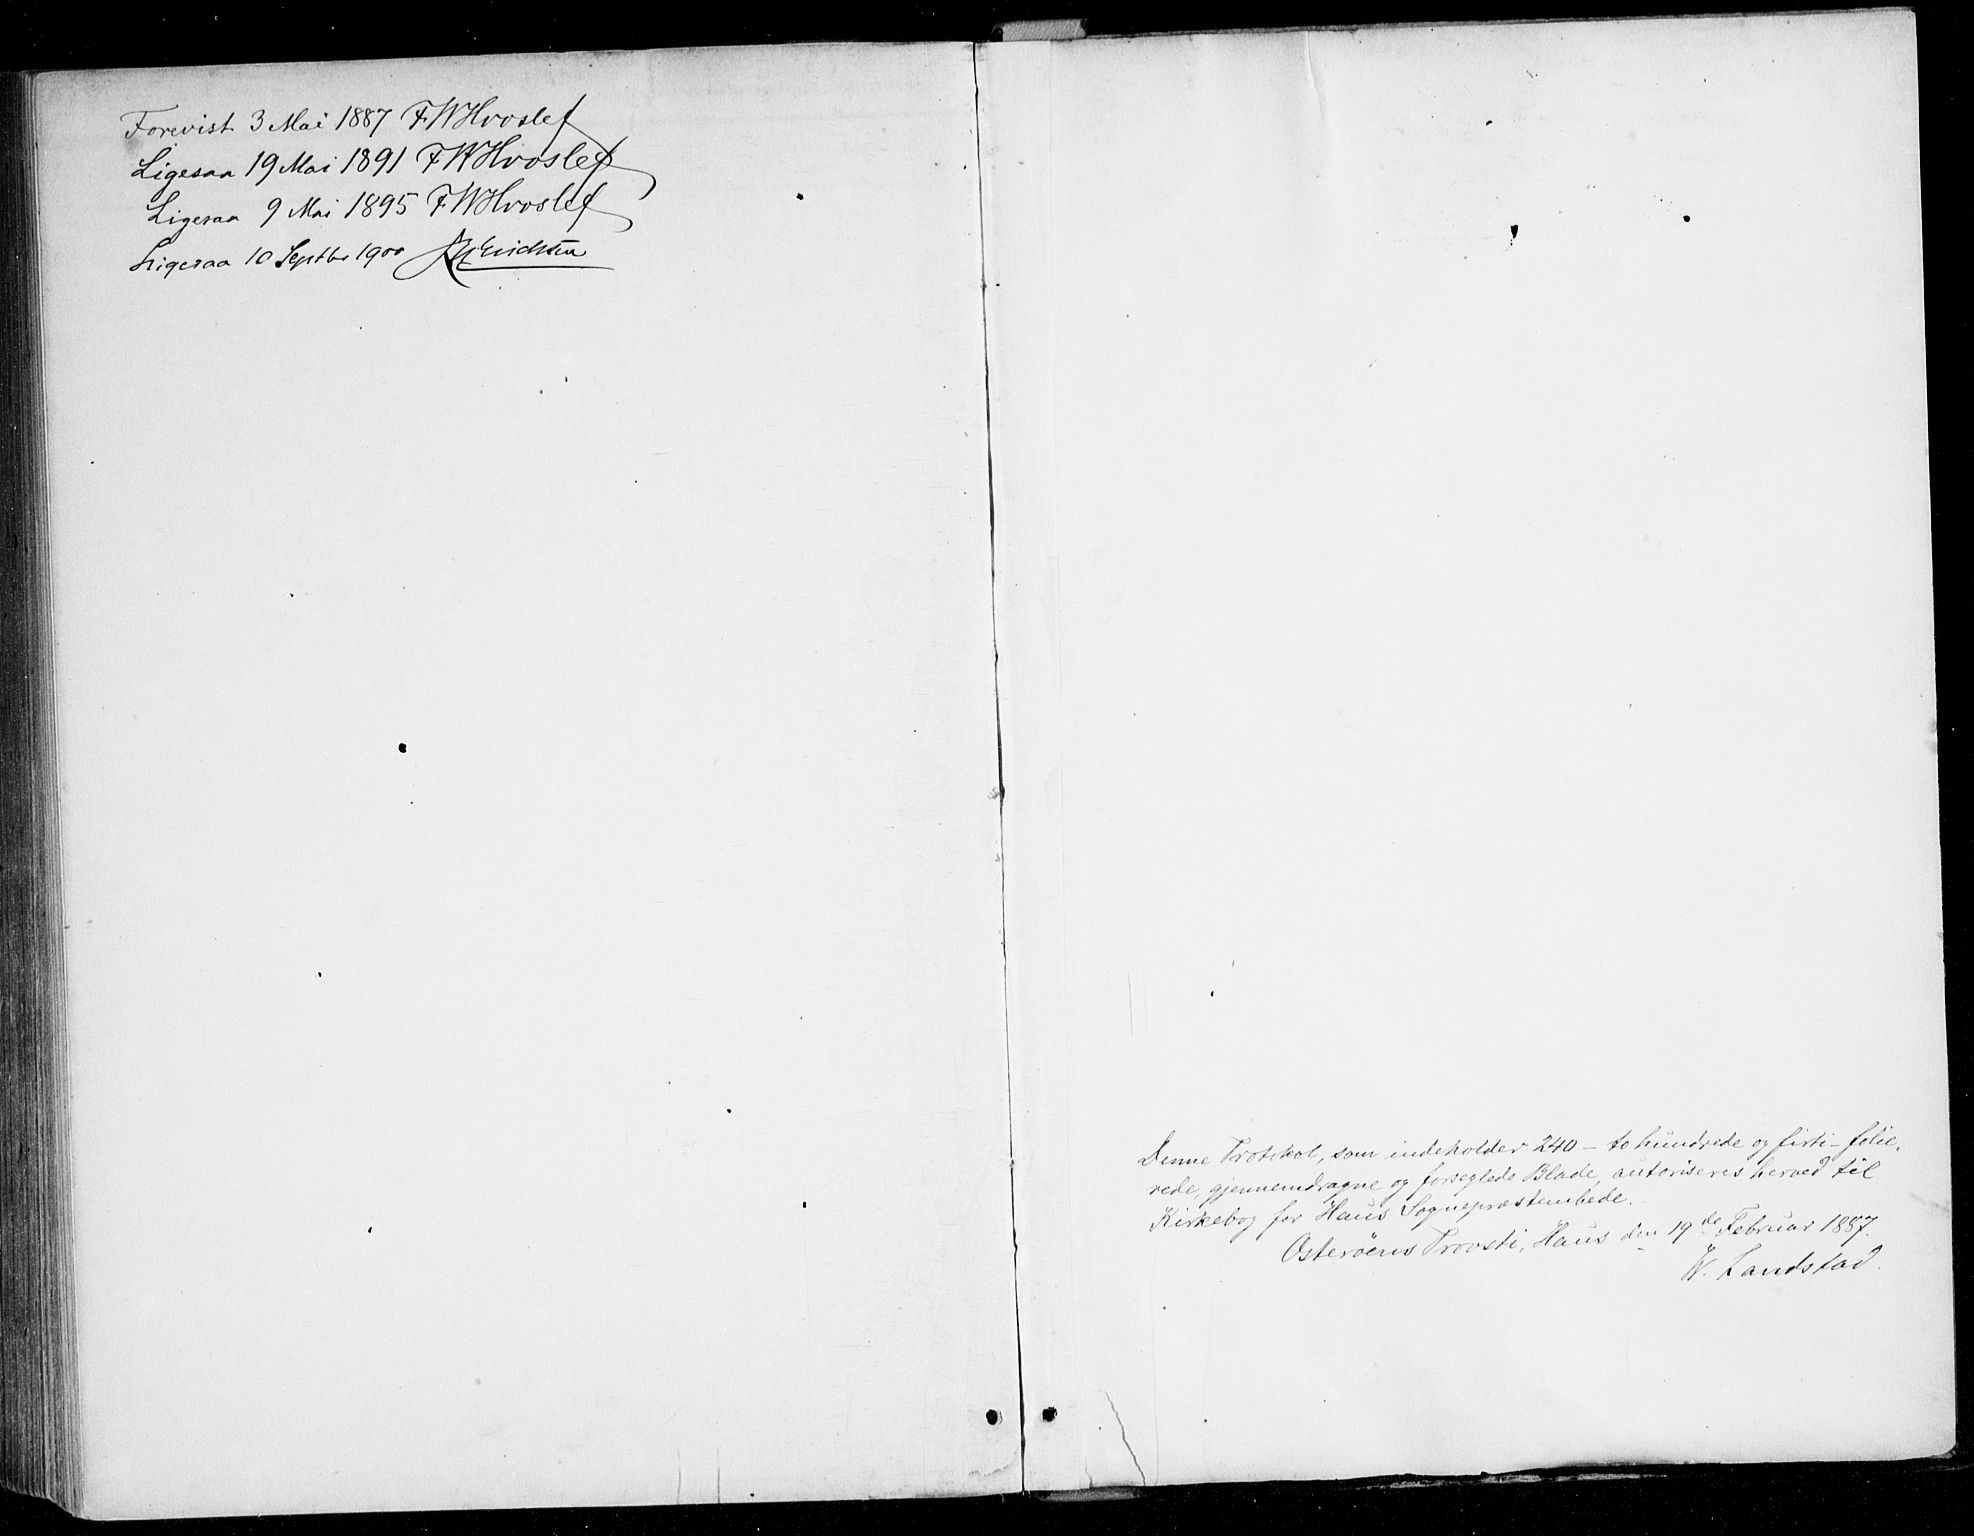 Forevist 3 Mai 1887 FWHvoslef
Ligesaa 19 Mai 1891 FWHvoslef
Ligesaa 9 Mai 1895 FWHvoslef
Ligesaa 10 Septbr 1900 Erichsen
Denne Protokol, som indeholder 240 – to hundrede og firti – folie-
rede, gjennemdragne og forseglede Blade, autoriseres herved til
Kirkebog for Haus Sognepræstembede.
Osterøens Provsti, Haus den 19de Februar 1887.
W. Landstad.